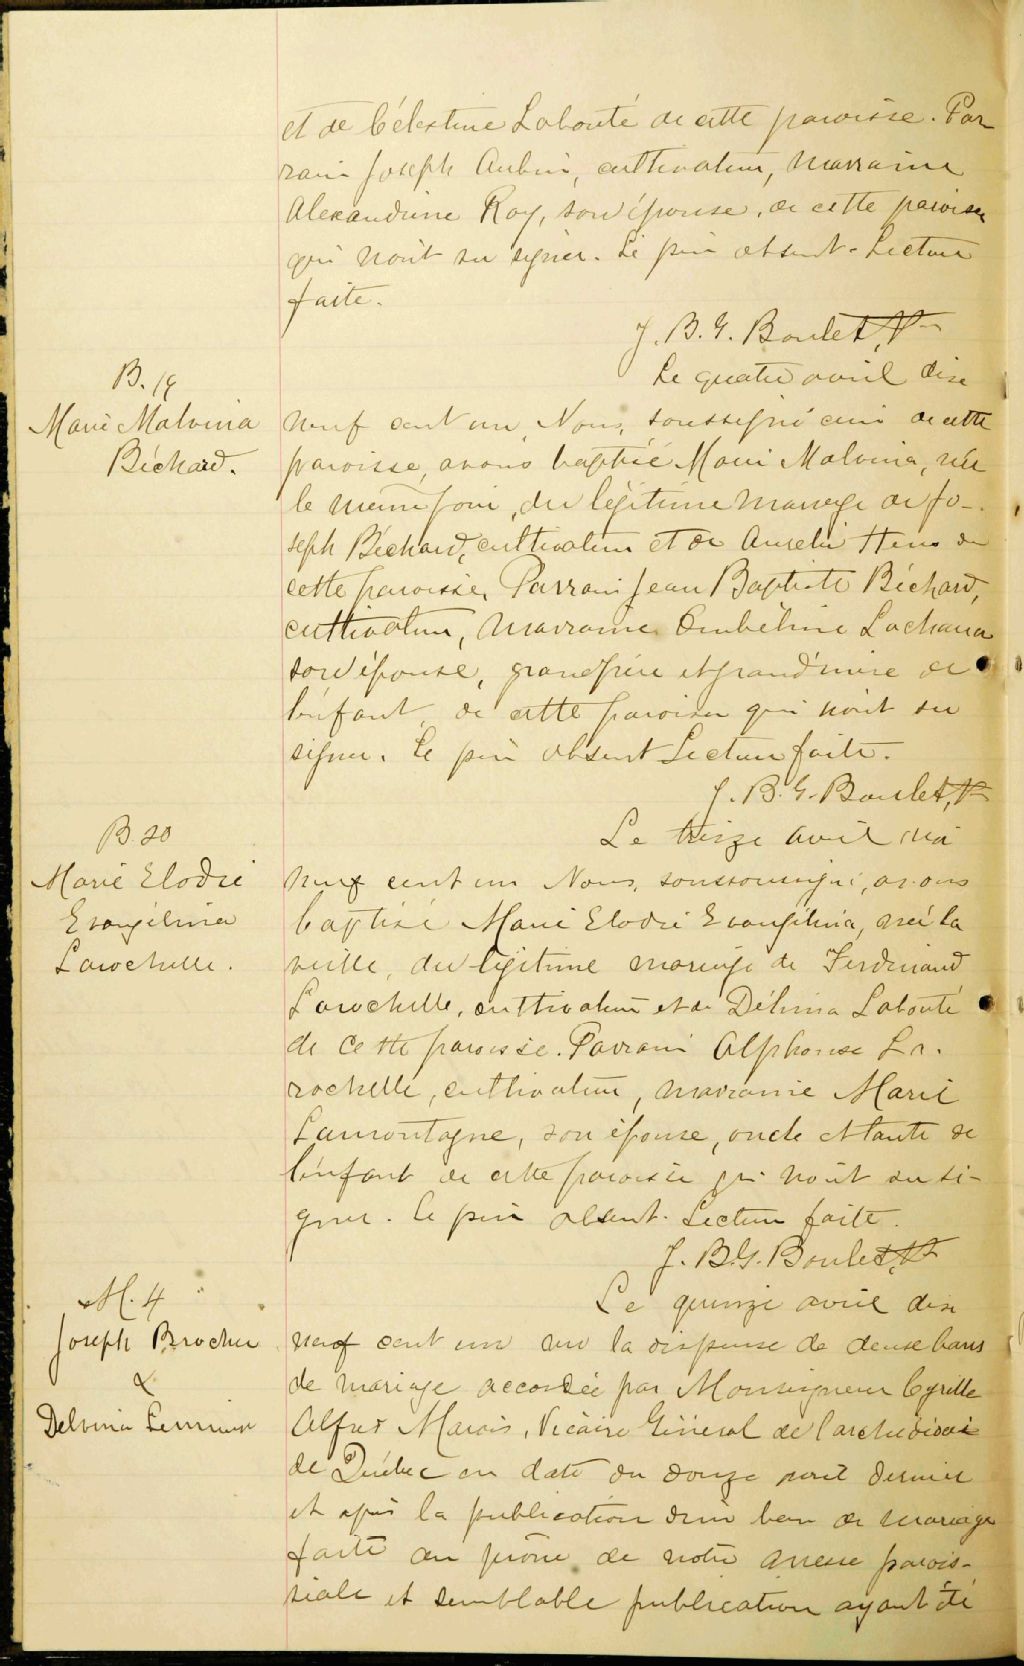 et de Célestine Labonté de cette paroisse. Par
rain Joseph Aubin, cultivateur, marraine
Alexandrine Roy, son épouse, de cette paroisse
qui n'ont su signer. Le père absent. Lecture
faite.
J. B. G. Boulet, Ptre
B. 19
Marie Malvina
Béchard.
Le quatre avril dix
neuf cent un, Nous, soussigné curé de cette
paroisse, avons baptisé Marie Malvina, née
le même jour, du légitime mariage de Jo-
seph Béchard, cultivateur et de Aurélie de
cette paroisse, Parrain Jean Baptiste Béchard,
cultivateur, marraine Ombéline Lachance
son épouse, grand père et grand'mère de
l'enfant, de cette paroisse qui n'ont su
signer. Le père absent Lecture faite.
J. B. G. Boulet, Ptre
B. 20
Marie Elodie
Evangélina
Larochelle.
Le treize avril mil
neuf cent un Nous, soussousigné, avons
baptisé Marie Elodie Evangélina, née la
veille, du légitime mariage de Ferdinand
Larochelle, cultivateur et de Délima Labonté
de cette paroisse. Parrain Alphonse La.
rochelle, cultivateur, marraine Marie
Lamontagne, son épouse, oncle et tante de
l'enfant de cette paroisse qui n'ont su si-
gner. Le père absent. Lecture faite.
J. B. G. Boulet, Ptre
M. 4
Joseph Brochu
&
Delvina Lemieux
Le quinze avril dix
neuf cent un vu la dispense de deux bans
de mariage accordée par Monseigneur Cyrille
Alfred Marois, Vicaire Général de l'archidiocèse
de Québec en date du douze avril dernier
et après la publication d'un ban de mariage
faite au prône de notre messe parois-
siale et semblable publication ayant été